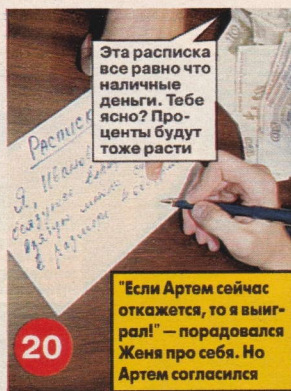 Эта расписка
все равно что
наличные
деньги. Тебе
ясно? Про-
центы будут
тоже расти
Расписк
Я, Иванов
"Если Артем сейчас
откажется, то я выиг-
рал!" — порадовался
Женя про себя. Но
Артем согласился
20